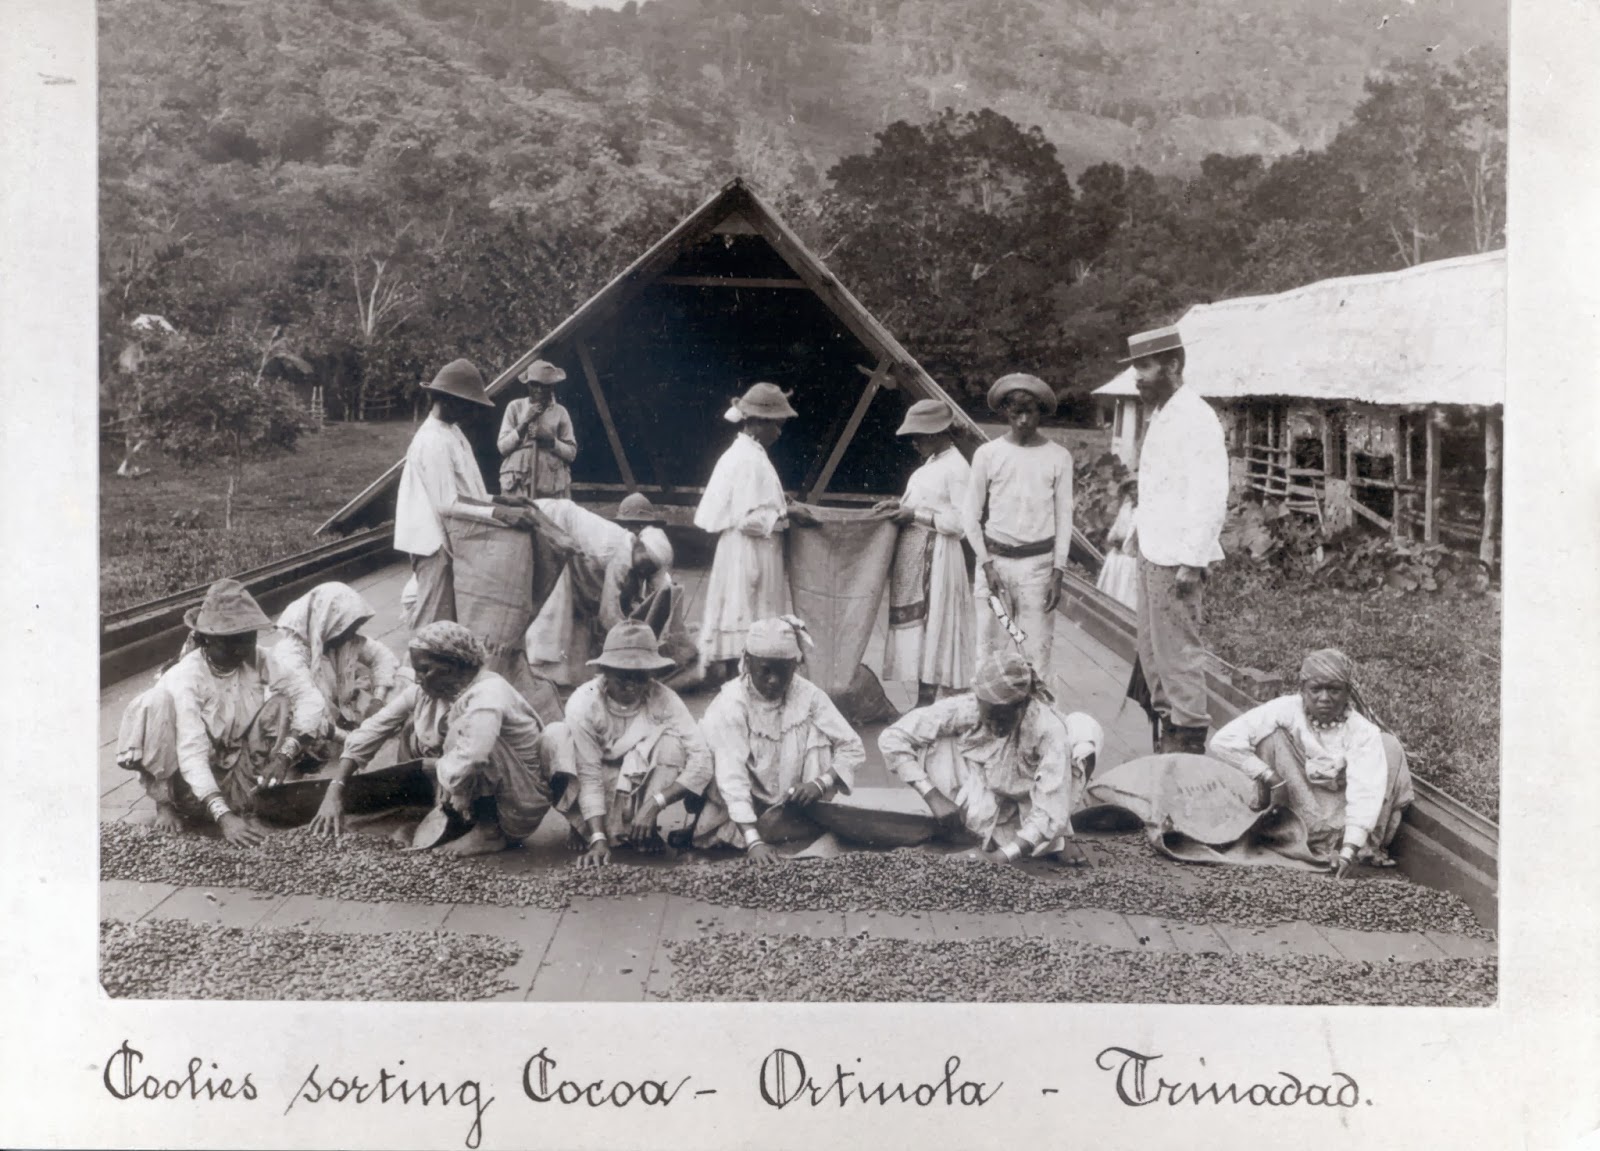 Coolies sorting Cocoa - Ortinola - Trinadad.